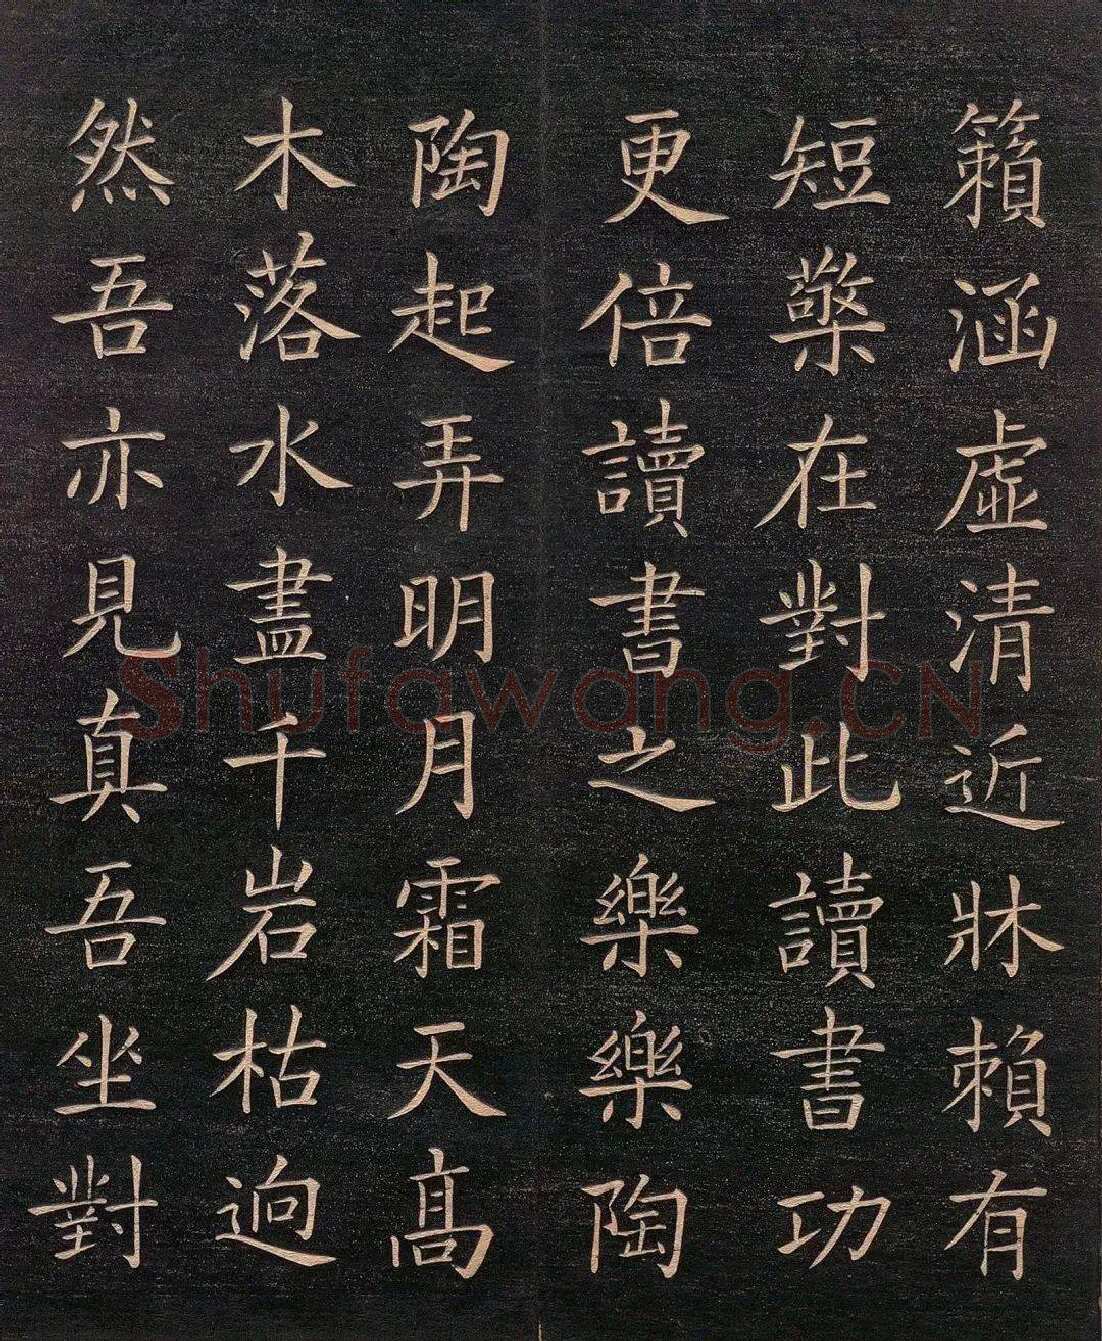 籟涵虛清近牀賴有
短檠在對此讀書功
更倍讀書之樂樂陶
陶起弄明月霜天髙
木落水盡千岩枯迥
然吾亦見真吾坐對
Shufawang.CN